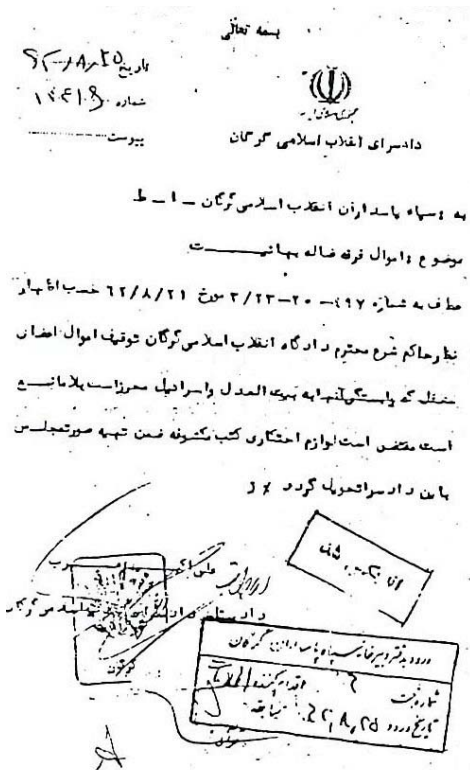 بسمه تعالی
تاریخ ۶۲/۸/۲۵
شماره
پیوست
دادسرای انقلاب اسلامی گرگان
به : سپاه پاسداران انقلاب اسلامی گرگان - ا - ط
موضوع : اموال فرقه ضاله بهائیت
عطف به شماره ۴۹۷-۲۰-۲/۲۳ مورخ ۶۲/۸/۲۱ حسب اظهار
نظر حاکم شرع محترم دادگاه انقلاب اسلامی گرگان توقیف اموال اعضای
محفل که وابستگی آنها به بیت العدل واسرائیل محرزاست بلامانع
است مقتضی است لوازم احتکاری کتب مکشوفه ضمن تهیه صورتجلس
باین دادسراتحویل گردد
علی
دادستان دادسرای انقلاب اسلامی گرگان
ورود بدفتر دبیرخانه سپاه پاسداران گرگان
شماره ثبت
اقدام کننده
تاریخ ورود ۶۲,۸,۲۵ سابقه